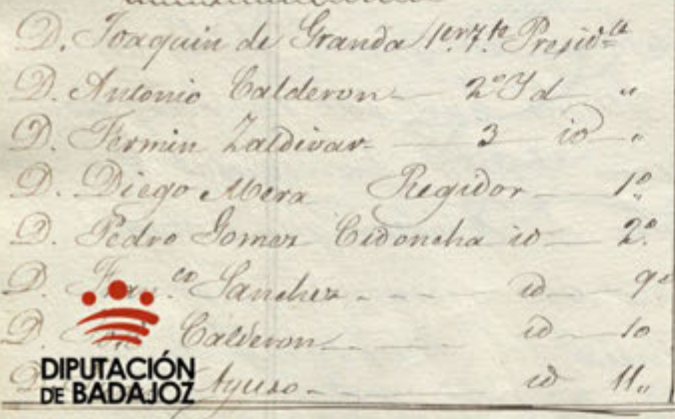 D. Joaquin de Granda 1er Tte Presidte
D. Antonio Calderon 2º Yd "
D. Fermin Zaldivar 3 id "
D. Diego Mera Regidor 1º
D. Pedro Gomez Cidoncha id 2º
D. Franco Sanchez id 9º
D. Calderon id 10
D. Ayuso id 11
DIPUTACIÓN
DE BADAJOZ